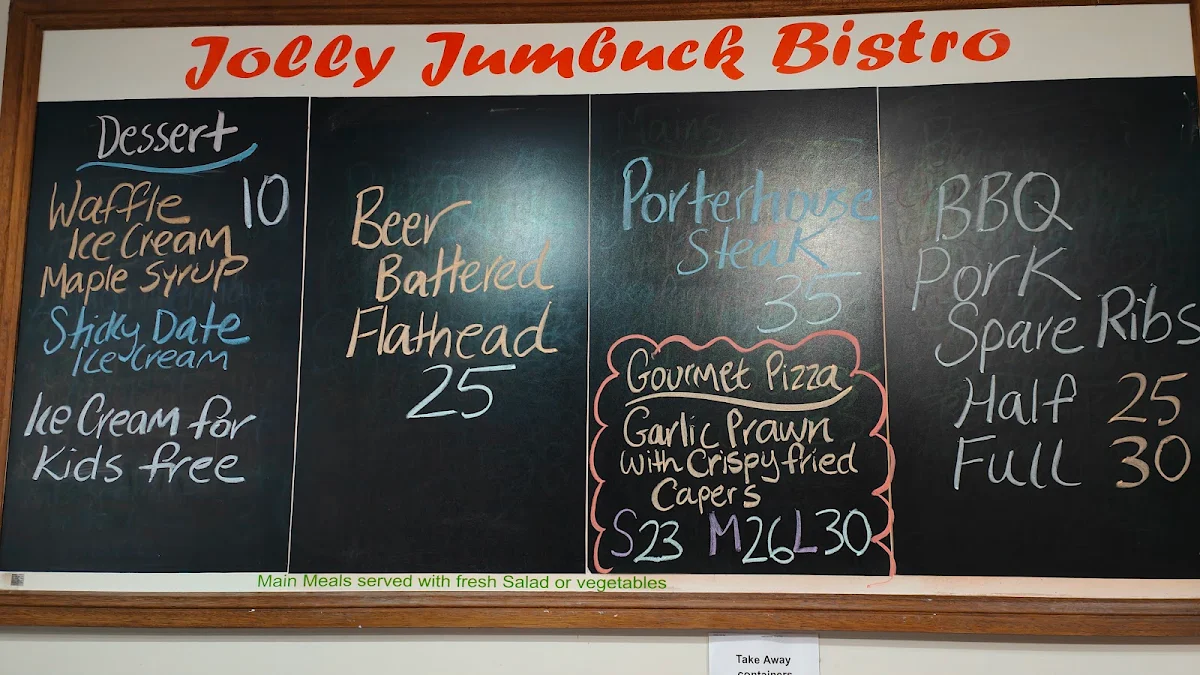 Jolly Jumbuck Bistro
Dessert
Waffle 10
Ice Cream
Maple Syrup
Sticky Date
Ice Cream
Ice Cream for
Kids free
Beer
Battered
Flathead
25
Mains
Porterhouse
Steak
35
Gourmet Pizza
Garlic Prawn
with Crispy fried
Capers
S23 M26 L30
BBQ
Pork
Spare Ribs
Half 25
Full 30
Main Meals served with fresh Salad or vegetables
Take Away
containers